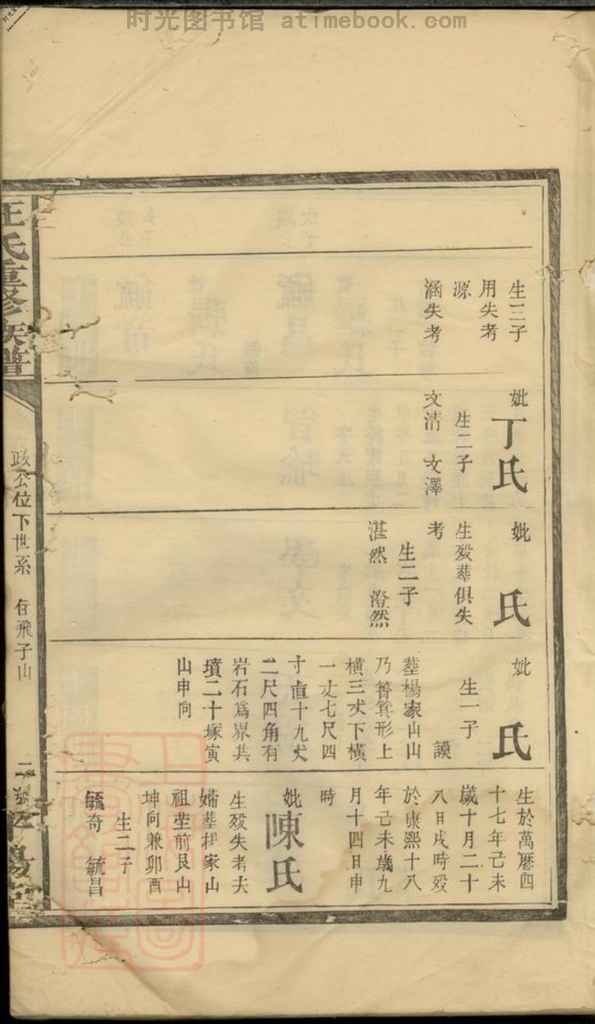 时光图书馆 atimebook.com
生三子
用失考
源
涵失考
妣丁氏
生二子
文清 文澤
妣 氏
生殁葬俱失
考
生二子
湛然 澄然
妣 氏
生一子
謨
葬楊家山山
乃簪箕形上
橫三丈下橫
一丈七尺四
寸直十九丈
二尺四角有
岩石爲界共
墳二十塚寅
山申向
生於萬曆四
十七年己未
歲十月二十
八日戌時殁
於康熙十八
年己未歲九
月十四日申
時
妣陳氏
生殁失考夫
婦葬 家山
祖塋前艮山
坤向兼卯酉
生二子
毓奇 毓昌
汪氏重修族譜
政公位下世系